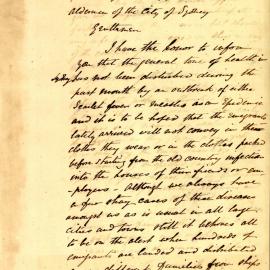 Aldermen of the City of Sydney
Gentlemen
I have the honor to inform
you that the general tone of health in
Sydney has not been disturbed during the
past month by an outbreak of either
Scarlet fever or measles as an Epidemic
and it is to be hoped that the emigrants
lately arrived will not convey in them
clothes they wear or in the clothes packed
before starting from the old country infection
into the houses of their friends or em
-ployers - Although we always have
a few stray cases of these diseases
amongst us as is usual in all large
cities and towns still it behoves all
to be on the alert when hundreds of
emigrants are landed and distributed
families from ships